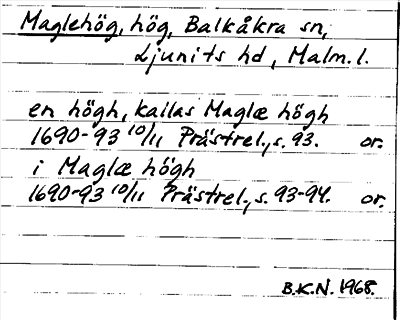 Maglehög, hög, Balkåkra sn,
Ljunits hd, Malm. l.
en högh, kallas Maglæ högh
1690-93 10/11 Prästrel., s. 93. or.
i Maglæ högh
1690-93 10/11 Prästrel., s. 93-94. or.
B.K.N. 1968.